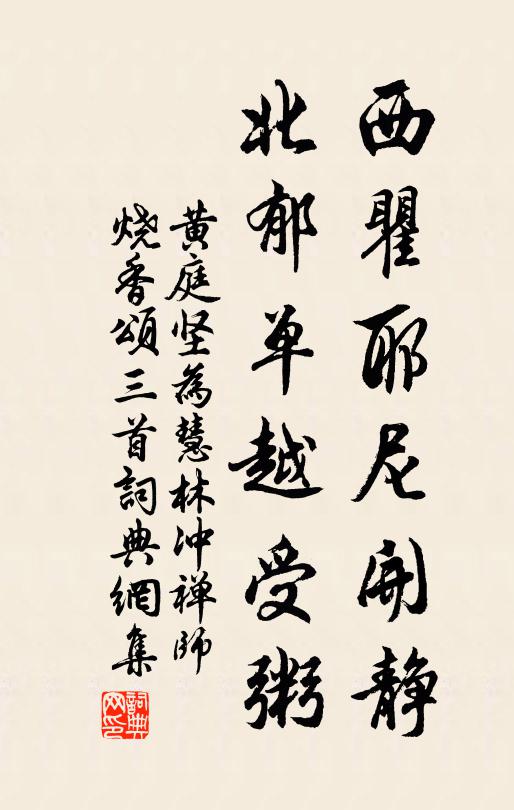 西瞿耶尼開静
北郁单越受粥
黄庭坚為慧林冲禅師
烧香頌三首詞典網集
詞典网印